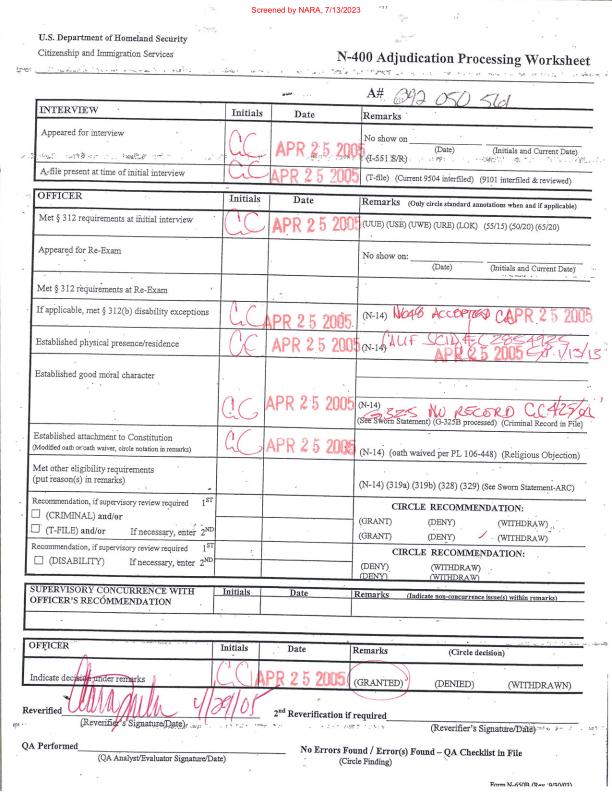 Screened by NARA, 7/13/2023
U.S. Department of Homeland Security
Citizenship and Immigration Services
N-400 Adjudication Processing Worksheet
A# 092 050 561
INTERVIEW Initials Date Remarks
Appeared for interview CC APR 25 2005 No show on
(Date) (Initials and Current Date)
(I-551 S/R)
A-file present at time of initial interview CC APR 25 2005 (T-file) (Current 9504 interfiled) (9101 interfiled & reviewed)
OFFICER Initials Date Remarks (Only circle standard annotations when and if applicable)
Met § 312 requirements at initial interview CC APR 25 2005 (UUE) (USE) (UWE) (URE) (LOK) (55/15) (50/20) (65/20)
Appeared for Re-Exam No show on:
(Date) (Initials and Current Date)
Met § 312 requirements at Re-Exam
If applicable, met § 312(b) disability exceptions CC APR 25 2005 (N-14) N648 ACCEPTED CC APR 25 2005
Established physical presence/residence CC APR 25 2005 (N-14) CALIF
APR 25 2005
Established good moral character CC APR 25 2005 (N-14)
G-325 NO RECORD CC 4/25/05
(See Sworn Statement) (G-325B processed) (Criminal Record in File)
Established attachment to Constitution CC APR 25 2005 (N-14) (oath waived per PL 106-448) (Religious Objection)
(Modified oath or oath waiver, circle notation in remarks)
Met other eligibility requirements
(put reason(s) in remarks) (N-14) (319a) (319b) (328) (329) (See Sworn Statement-ARC)
Recommendation, if supervisory review required 1ST CIRCLE RECOMMENDATION:
(CRIMINAL) and/or (GRANT) (DENY) (WITHDRAW)
(T-FILE) and/or If necessary, enter 2ND (GRANT) (DENY) (WITHDRAW)
Recommendation, if supervisory review required 1ST CIRCLE RECOMMENDATION:
(DISABILITY) If necessary, enter 2ND (DENY) (WITHDRAW)
(DENY) (WITHDRAW)
SUPERVISORY CONCURRENCE WITH OFFICER'S RECOMMENDATION Initials Date Remarks (Indicate non-concurrence issue(s) within remarks)
OFFICER Initials Date Remarks (Circle decision)
Indicate decision under remarks CC APR 25 2005 (GRANTED) (DENIED) (WITHDRAWN)
Reverified 4/29/05 2nd Reverification if required
(Reverifier's Signature/Date) (Reverifier's Signature/Date)
QA Performed No Errors Found / Error(s) Found – QA Checklist in File
(QA Analyst/Evaluator Signature/Date) (Circle Finding)
Form N-650B (Rev. 9/30/03)